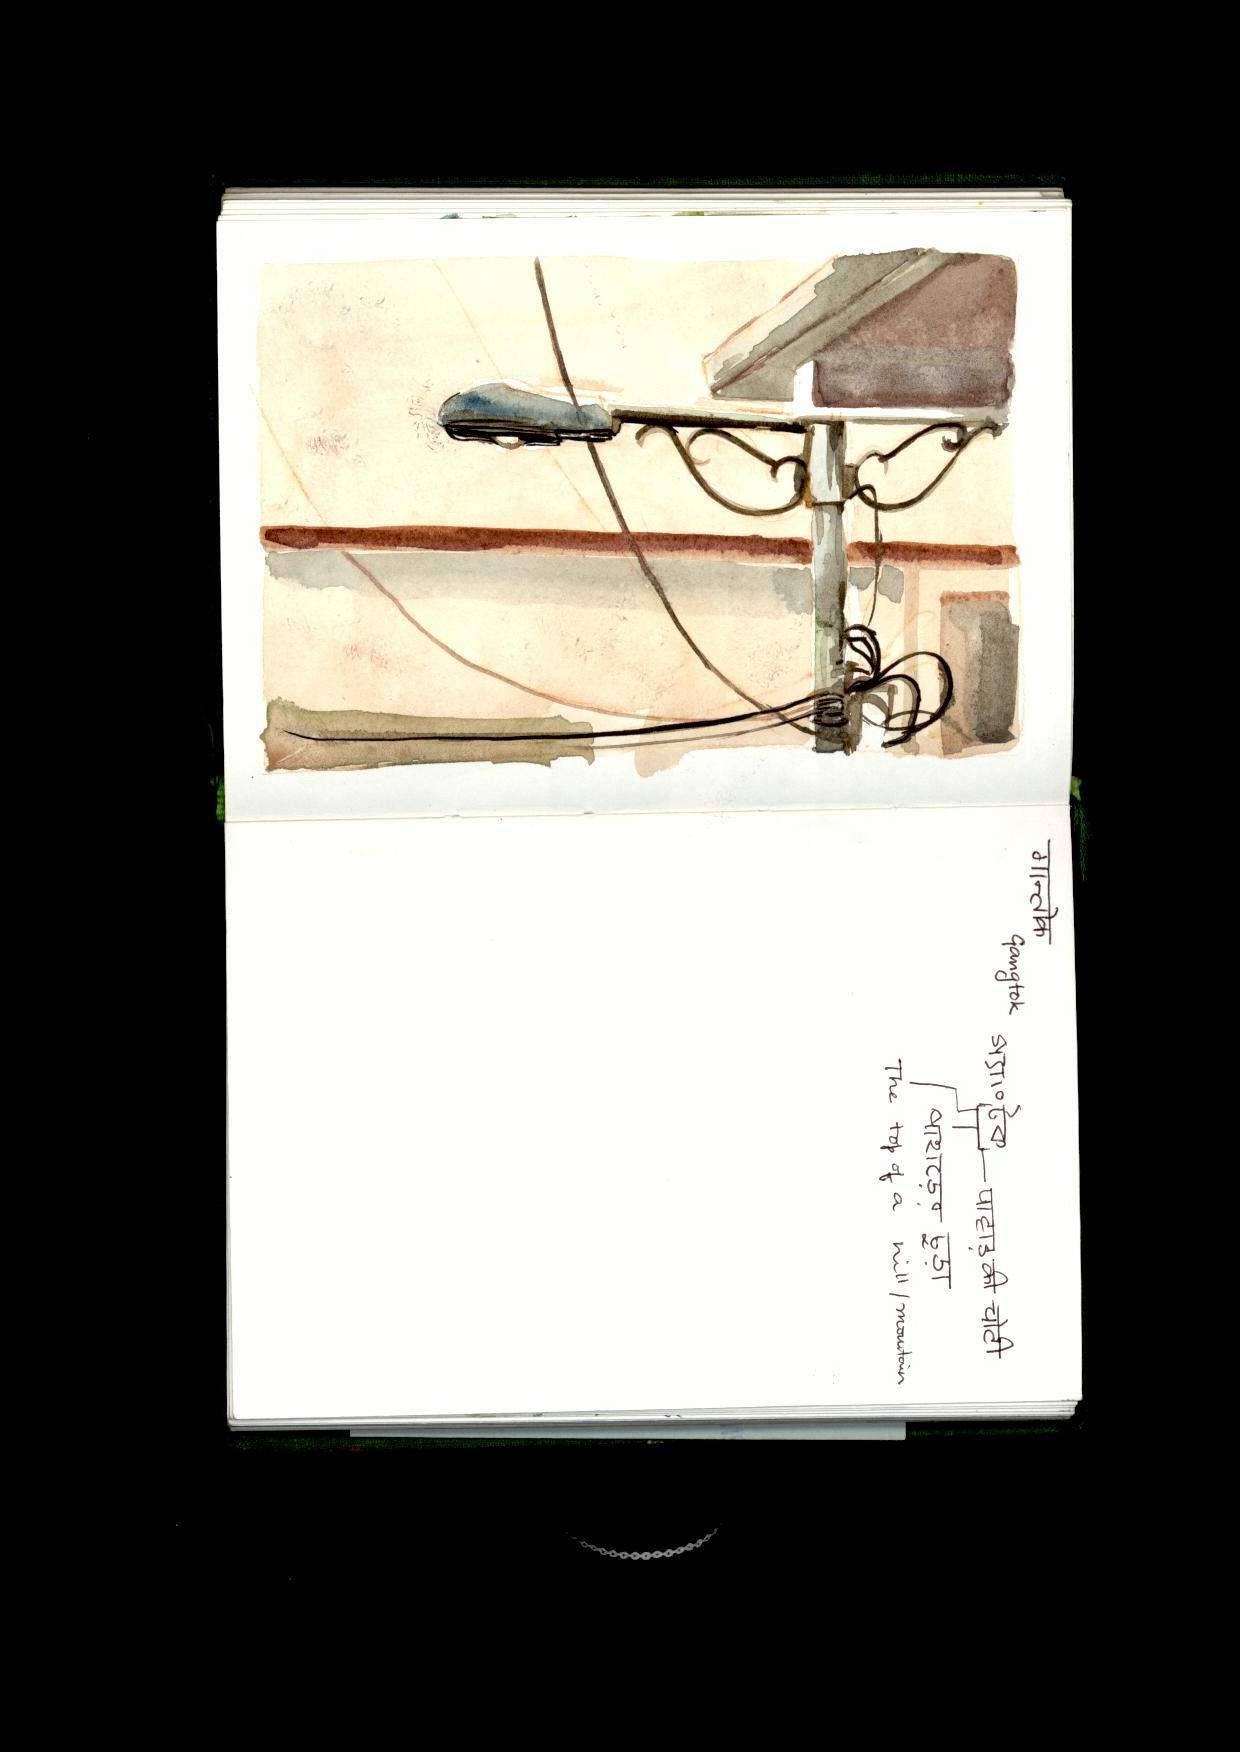 गान्तोक
Gangtok
গ্যাংটক
पाहाड़ की चोटी
পাহাড়ের চূড়া
The top of a hill/mountain